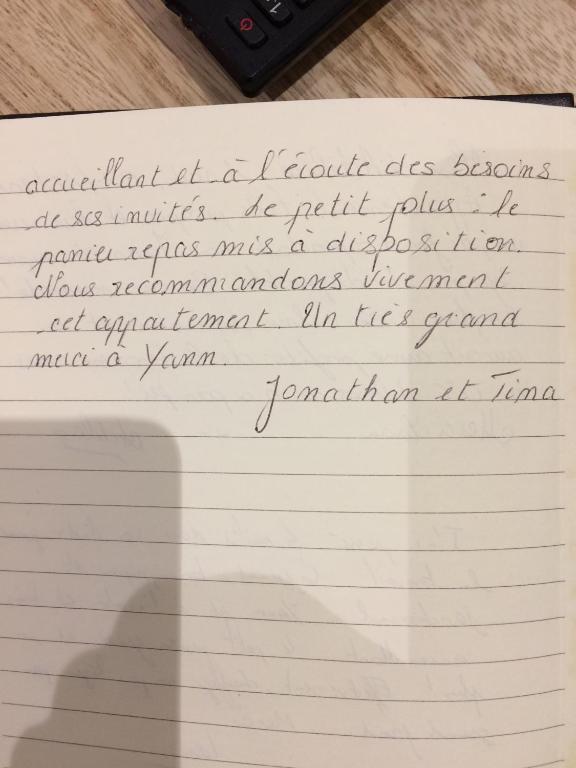 accueillant et à l'écoute des besoins
de ses invités. Le petit plus : le
panier repas mis à disposition.
Nous recommandons vivement
cet appartement. Un très grand
merci à Yann.
Jonathan et Tima